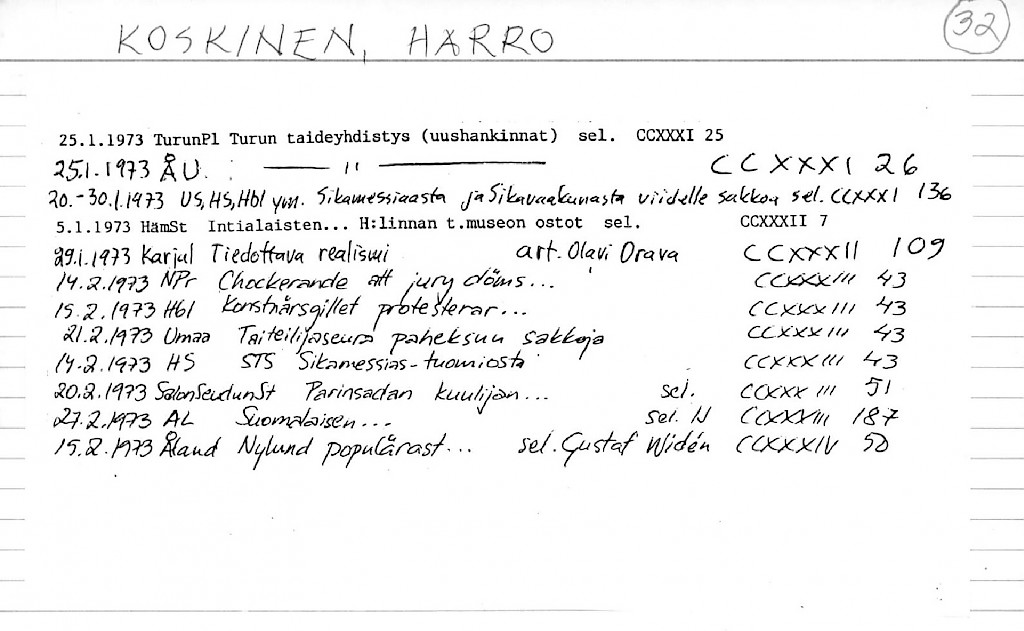 KOSKINEN, HARRO
32
25.1.1973 TurunPl Turun taideyhdistys (uushankinnat) sel. CCXXXI 25
25.1.1973 ÅU. : —— " —— CCXXXI 26
20.-30.1.1973 US, HS, Hbl ym. Sikamessiaasta ja Sikavaakunasta viidelle sakkoa sel. CCXXXI 136
5.1.1973 HämSt Intialaisten... H:linnan t.museon ostot sel. CCXXXII 7
29.1.1973 Karjal Tiedottava realismi art. Olavi Orava CCXXXII 109
14.2.1973 NPr Chockerande att jury döms... CCXXXIII 43
15.2.1973 Hbl Konstnärsgillet protesterar... CCXXXIII 43
21.2.1973 Umaa Taiteilijaseura paheksuu sakkoja CCXXXIII 43
14.2.1973 HS STS Sikamessias-tuomiosta CCXXXIII 43
20.2.1973 SalonSeudunSt Parinsadan kuulijan... sel. CCXXXIII 51
27.2.1973 AL Suomalaisen... sel. N CCXXXIII 187
15.2.1973 Åland Nylund populärast... sel. Gustaf Widén CCXXXIV 50